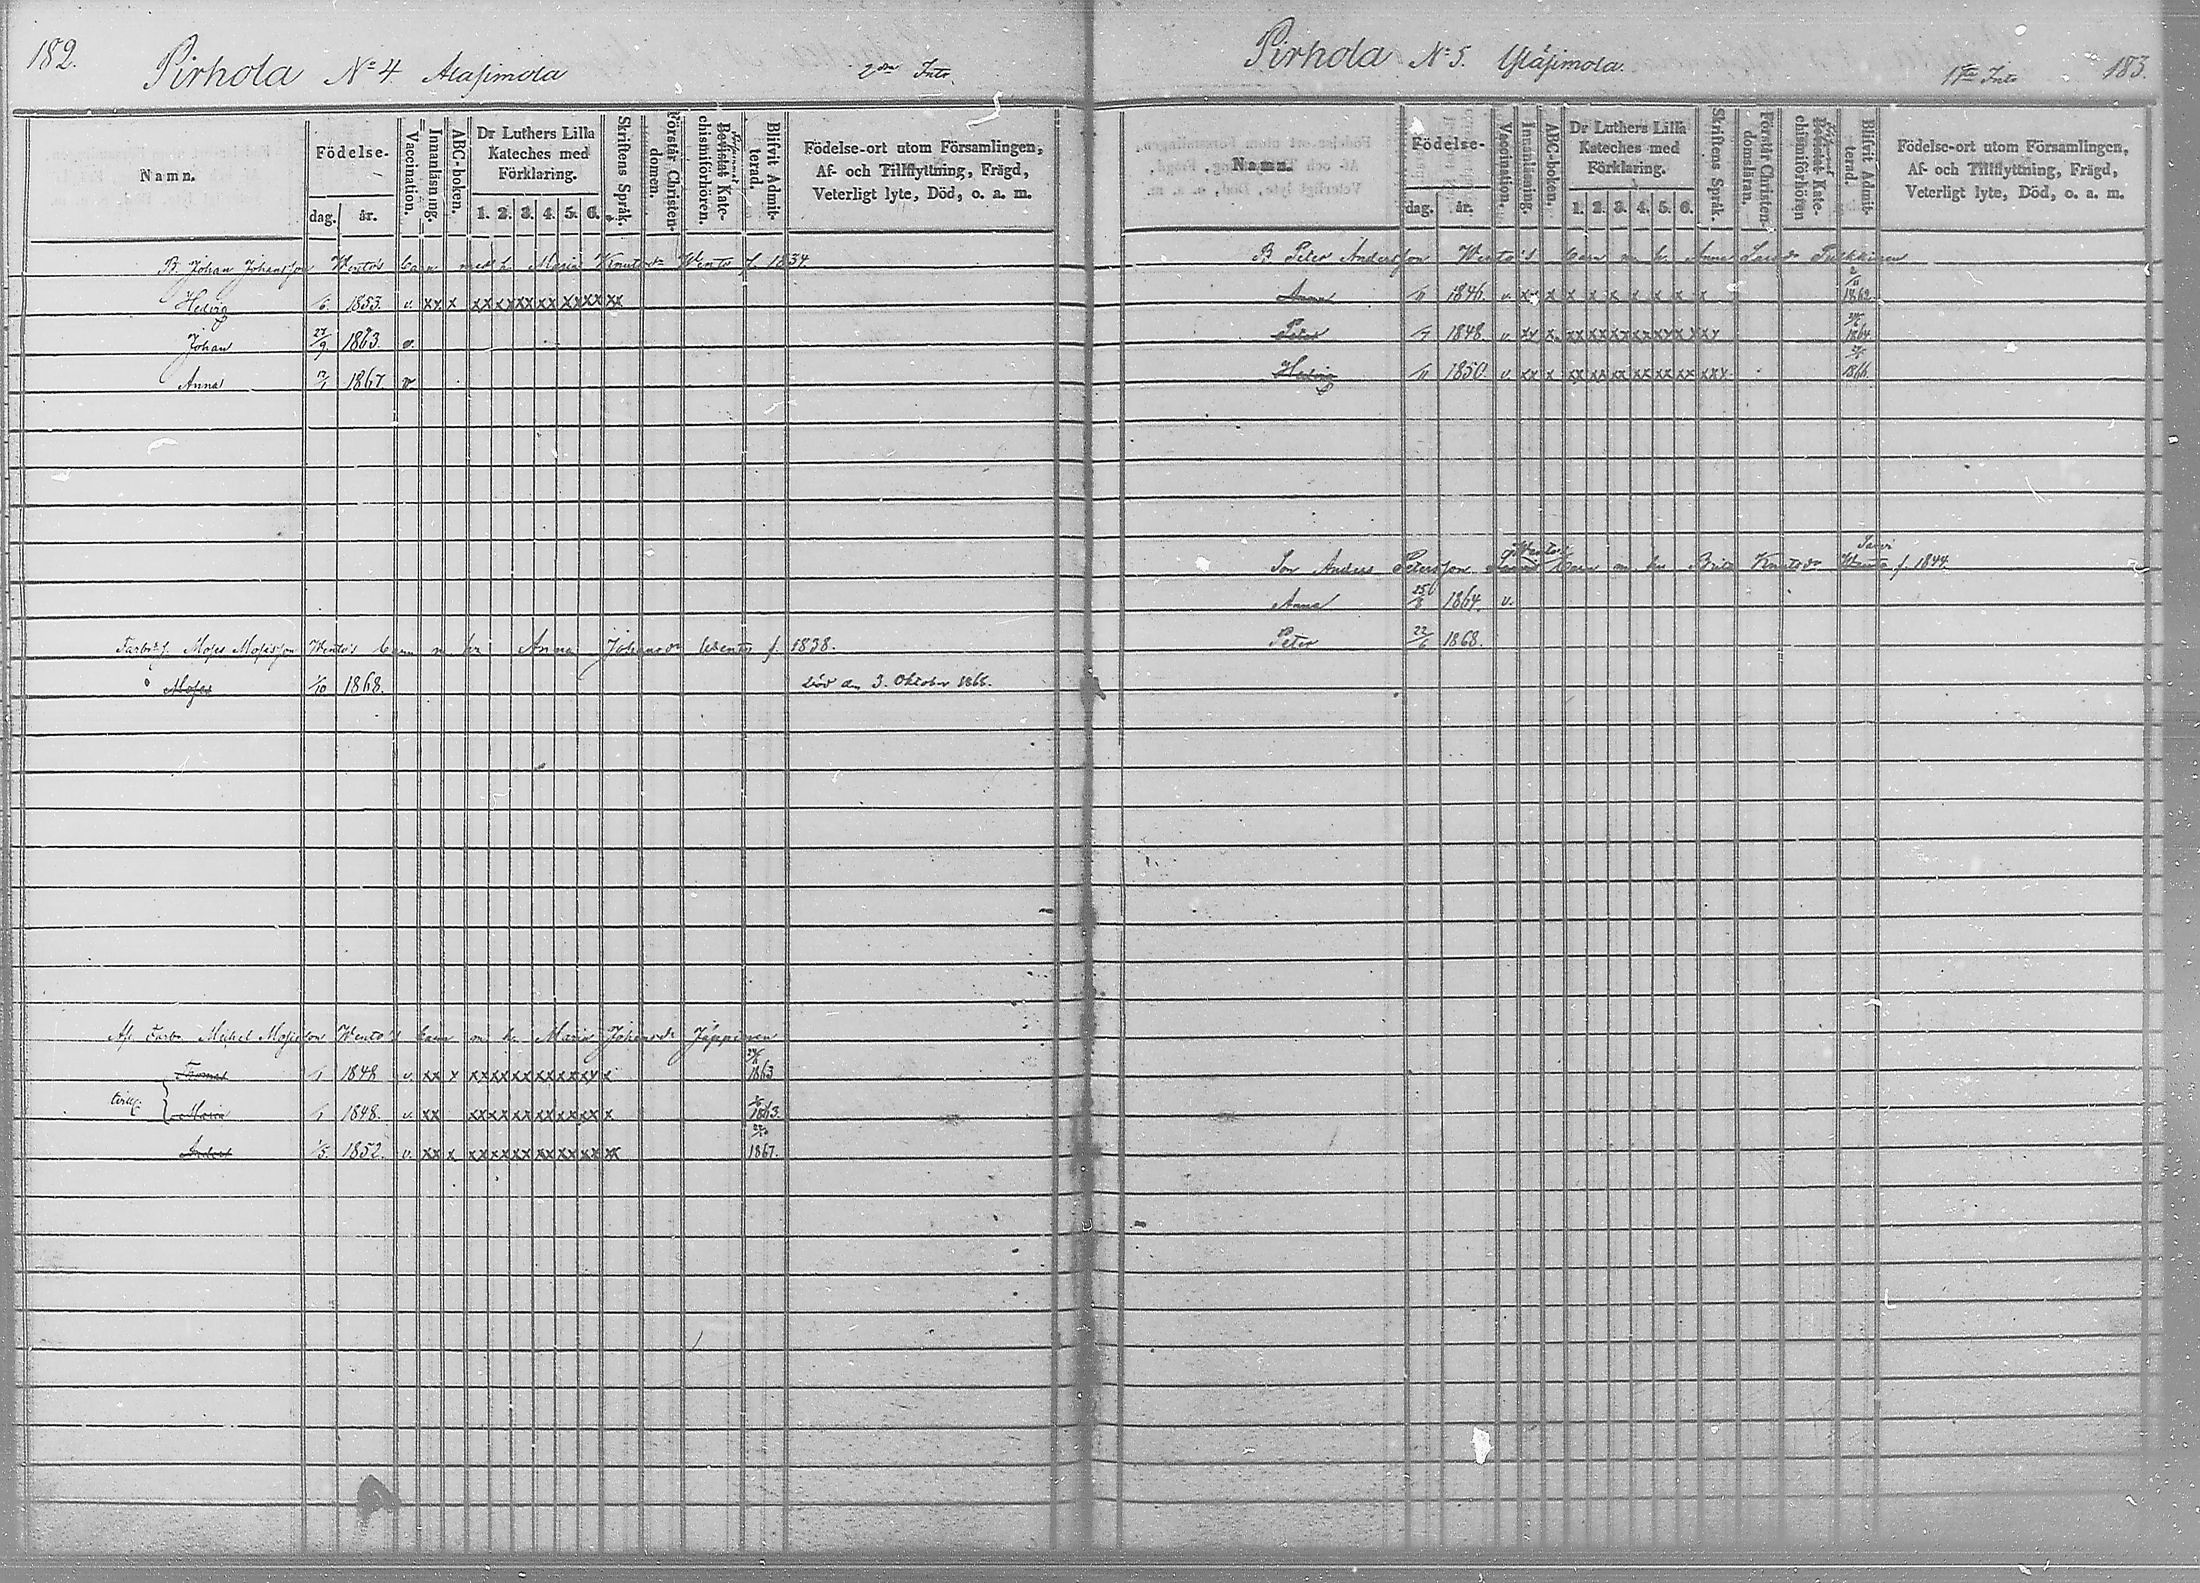 182.
Pirhola No 4 Alasimola 2dra Into.
Namn.
Födelse-
dag. år.
Vaccination.
Innanläsning.
ABC-boken.
Dr Luthers Lilla Kateches med Förklaring.
1. 2. 3. 4. 5. 6.
Skriftens Språk.
Förstår Christendomen.
Kate-chismiförhören.
Blifvit Admit-terad.
Födelse-ort utom Församlingen, Af- och Tillflyttning, Frägd, Veterligt lyte, Död, o. a. m.
B. Johan Johansson Wento's barn med h. Maria Knutsdr Wento f. 1834.
Hedvig 1853. v xx x xx xx xx xx xx xx xx
Johan 27/9 1863. v.
Anna 1867 v
Moses Mosesson Wento's barn m hu Anna Johansdr Wento f. 1838.
Moses 1/10 1868. död den 3. Oktober 1868.
Af. Farbr. Michel Mosesson Wento's barn m h. Maria Johansdr Jäppinen
Thomas 1848 v. xx x xx xx xx xx xx xx x 1863
tvill. Maria 1848. v. xx xx xx xx xx xx xx x 1863.
Anders 1/5 1852. v. xx x xx xx xx xx xx xx xx 1867.
Pirhola No 5. Yläsimola. 1sta Into 183.
Namn.
Födelse-
dag. år.
Vaccination.
Innanläsning.
ABC-boken.
Dr Luthers Lilla Kateches med Förklaring.
1. 2. 3. 4. 5. 6.
Skriftens Språk.
Förstår Christen-domsläran.
Kate-chismiförhören
Blifvit Admit-terad.
Födelse-ort utom Församlingen, Af- och Tillflyttning, Frägd, Veterligt lyte, Död, o. a. m.
B Peter Andersson Wento's barn m h. Anna Larsdr
Anna 1846. v. xx x x x x x x x x 1862.
Peter 1848. v. xx x. xx xx xx xx xx xx xx 1864
Hedvig 1850. v. xx x xx xx xx xx xx xx xxx 1866
Son Anders Petersson Wento's barn m hu Brita Knutsdr f. 1844.
Anna 25/8 1864. v.
Peter 22/6 1868.